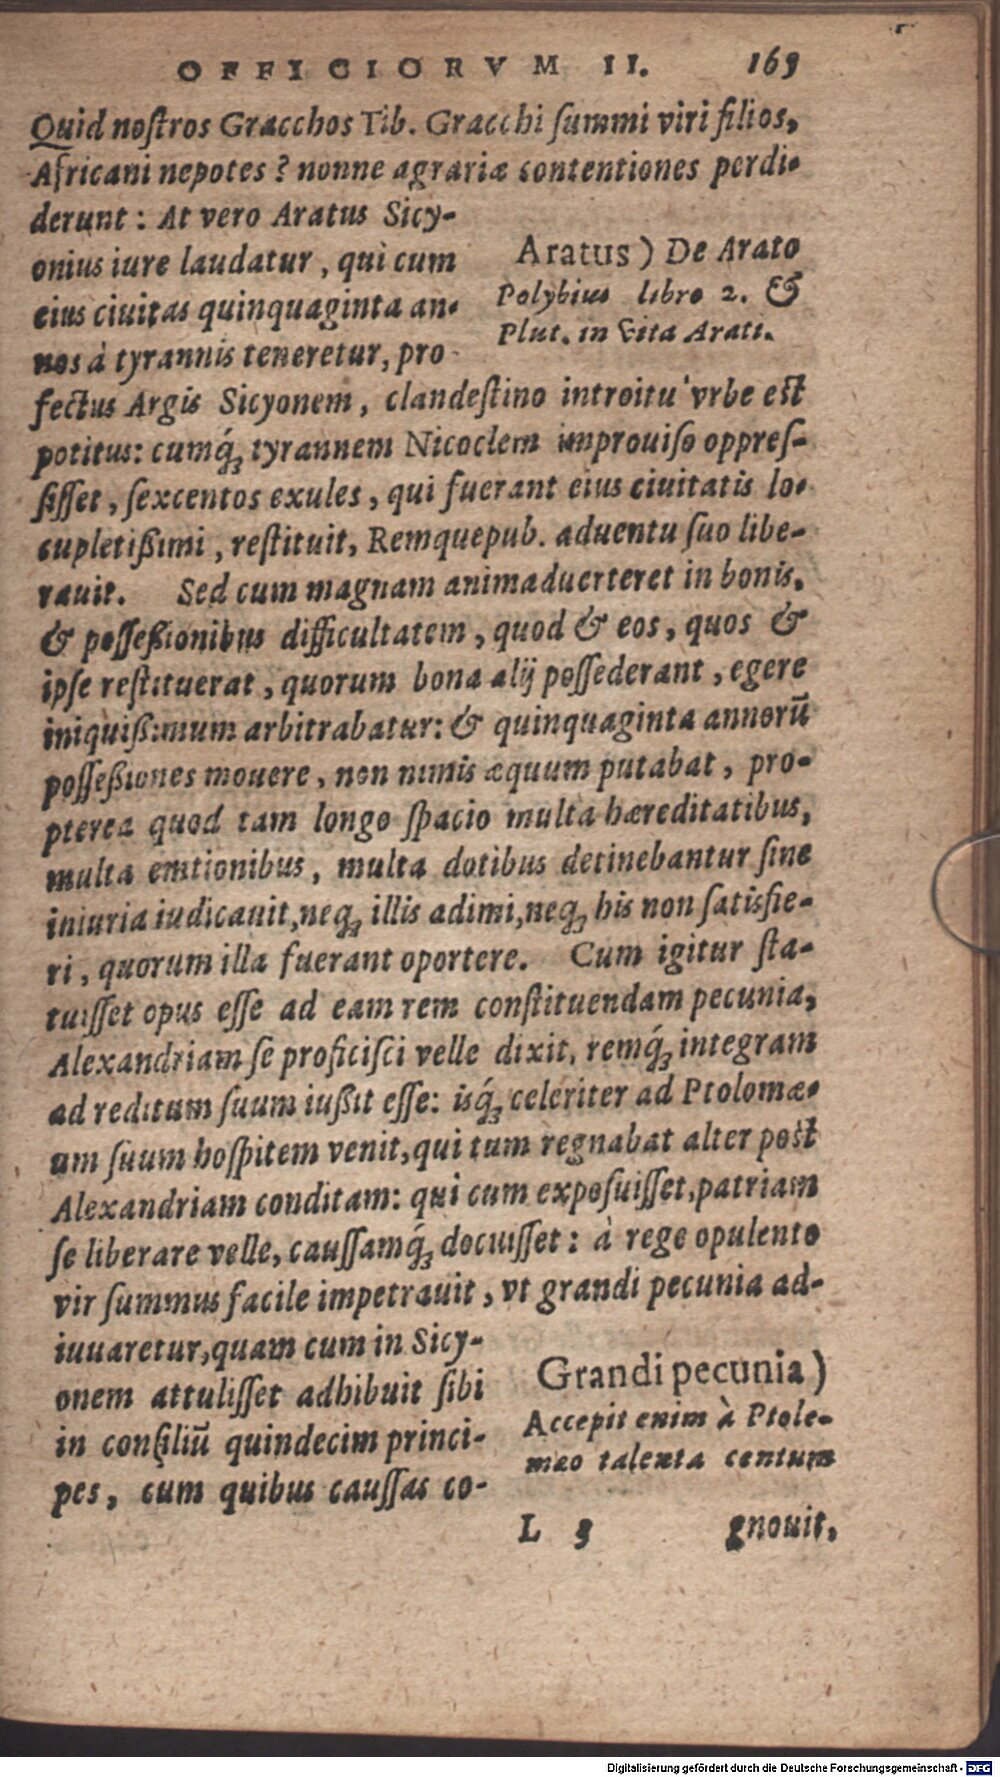 OFFICIORVM II. 165
Quid noſtros Gracchos Tib. Gracchi ſummi viri filios,
Africani nepotes? nonne agrariæ contentiones perdi-
derunt: At vero Aratus Sicy-
onius iure laudatur, qui cum
eius ciuitas quinquaginta an-
nos à tyrannis teneretur, pro
Aratus) De Arato
Polybius libro 2. &
Plut. in vita Arati.
fectus Argis Sicyonem, clandeſtino introitu vrbe eſt
potitus: cumq́ꝫ tyrannem Nicoclem improuiſo oppreſ-
ſiſſet, ſexcentos exules, qui fuerant eius ciuitatis lo-
cupletißimi, reſtituit, Remquepub. aduentu ſuo libe-
rauit. Sed cum magnam animaduerteret in bonis,
& poſſeßionibus difficultatem, quod & eos, quos &
ipſe reſtituerat, quorum bona alij poſſederant, egere
iniquiß:mum arbitrabatur: & quinquaginta annorū
poſſeßiones mouere, non nimis æquum putabat, pro-
pterea quod tam longo ſpacio multa hæreditatibus,
multa emtionibus, multa dotibus detinebantur ſine
iniuria iudicauit, neqꝫ illis adimi, neqꝫ his non ſatisfie-
ri, quorum illa fuerant oportere. Cum igitur ſta-
tuiſſet opus eſſe ad eam rem conſtituendam pecunia,
Alexandriam ſe proficiſci velle dixit, remq́ꝫ integram
ad reditum ſuum iußit eſſe: isq́ꝫ celeriter ad Ptolomæ-
um ſuum hoſpitem venit, qui tum regnabat alter poſt
Alexandriam conditam: qui cum expoſuiſſet, patriam
ſe liberare velle, cauſſamq́ꝫ docuiſſet: à rege opulento
vir ſummus facile impetrauit, vt grandi pecunia ad-
iuuaretur, quam cum in Sicy-
onem attuliſſet adhibuit ſibi
in conſiliū quindecim princi-
pes, cum quibus cauſſas co-
Grandi pecunia)
Accepit enim à Ptole-
mæo talenta centum
L 5 gnouit,
Digitalisierung gefördert durch die Deutsche Forschungsgemeinschaft - DFG